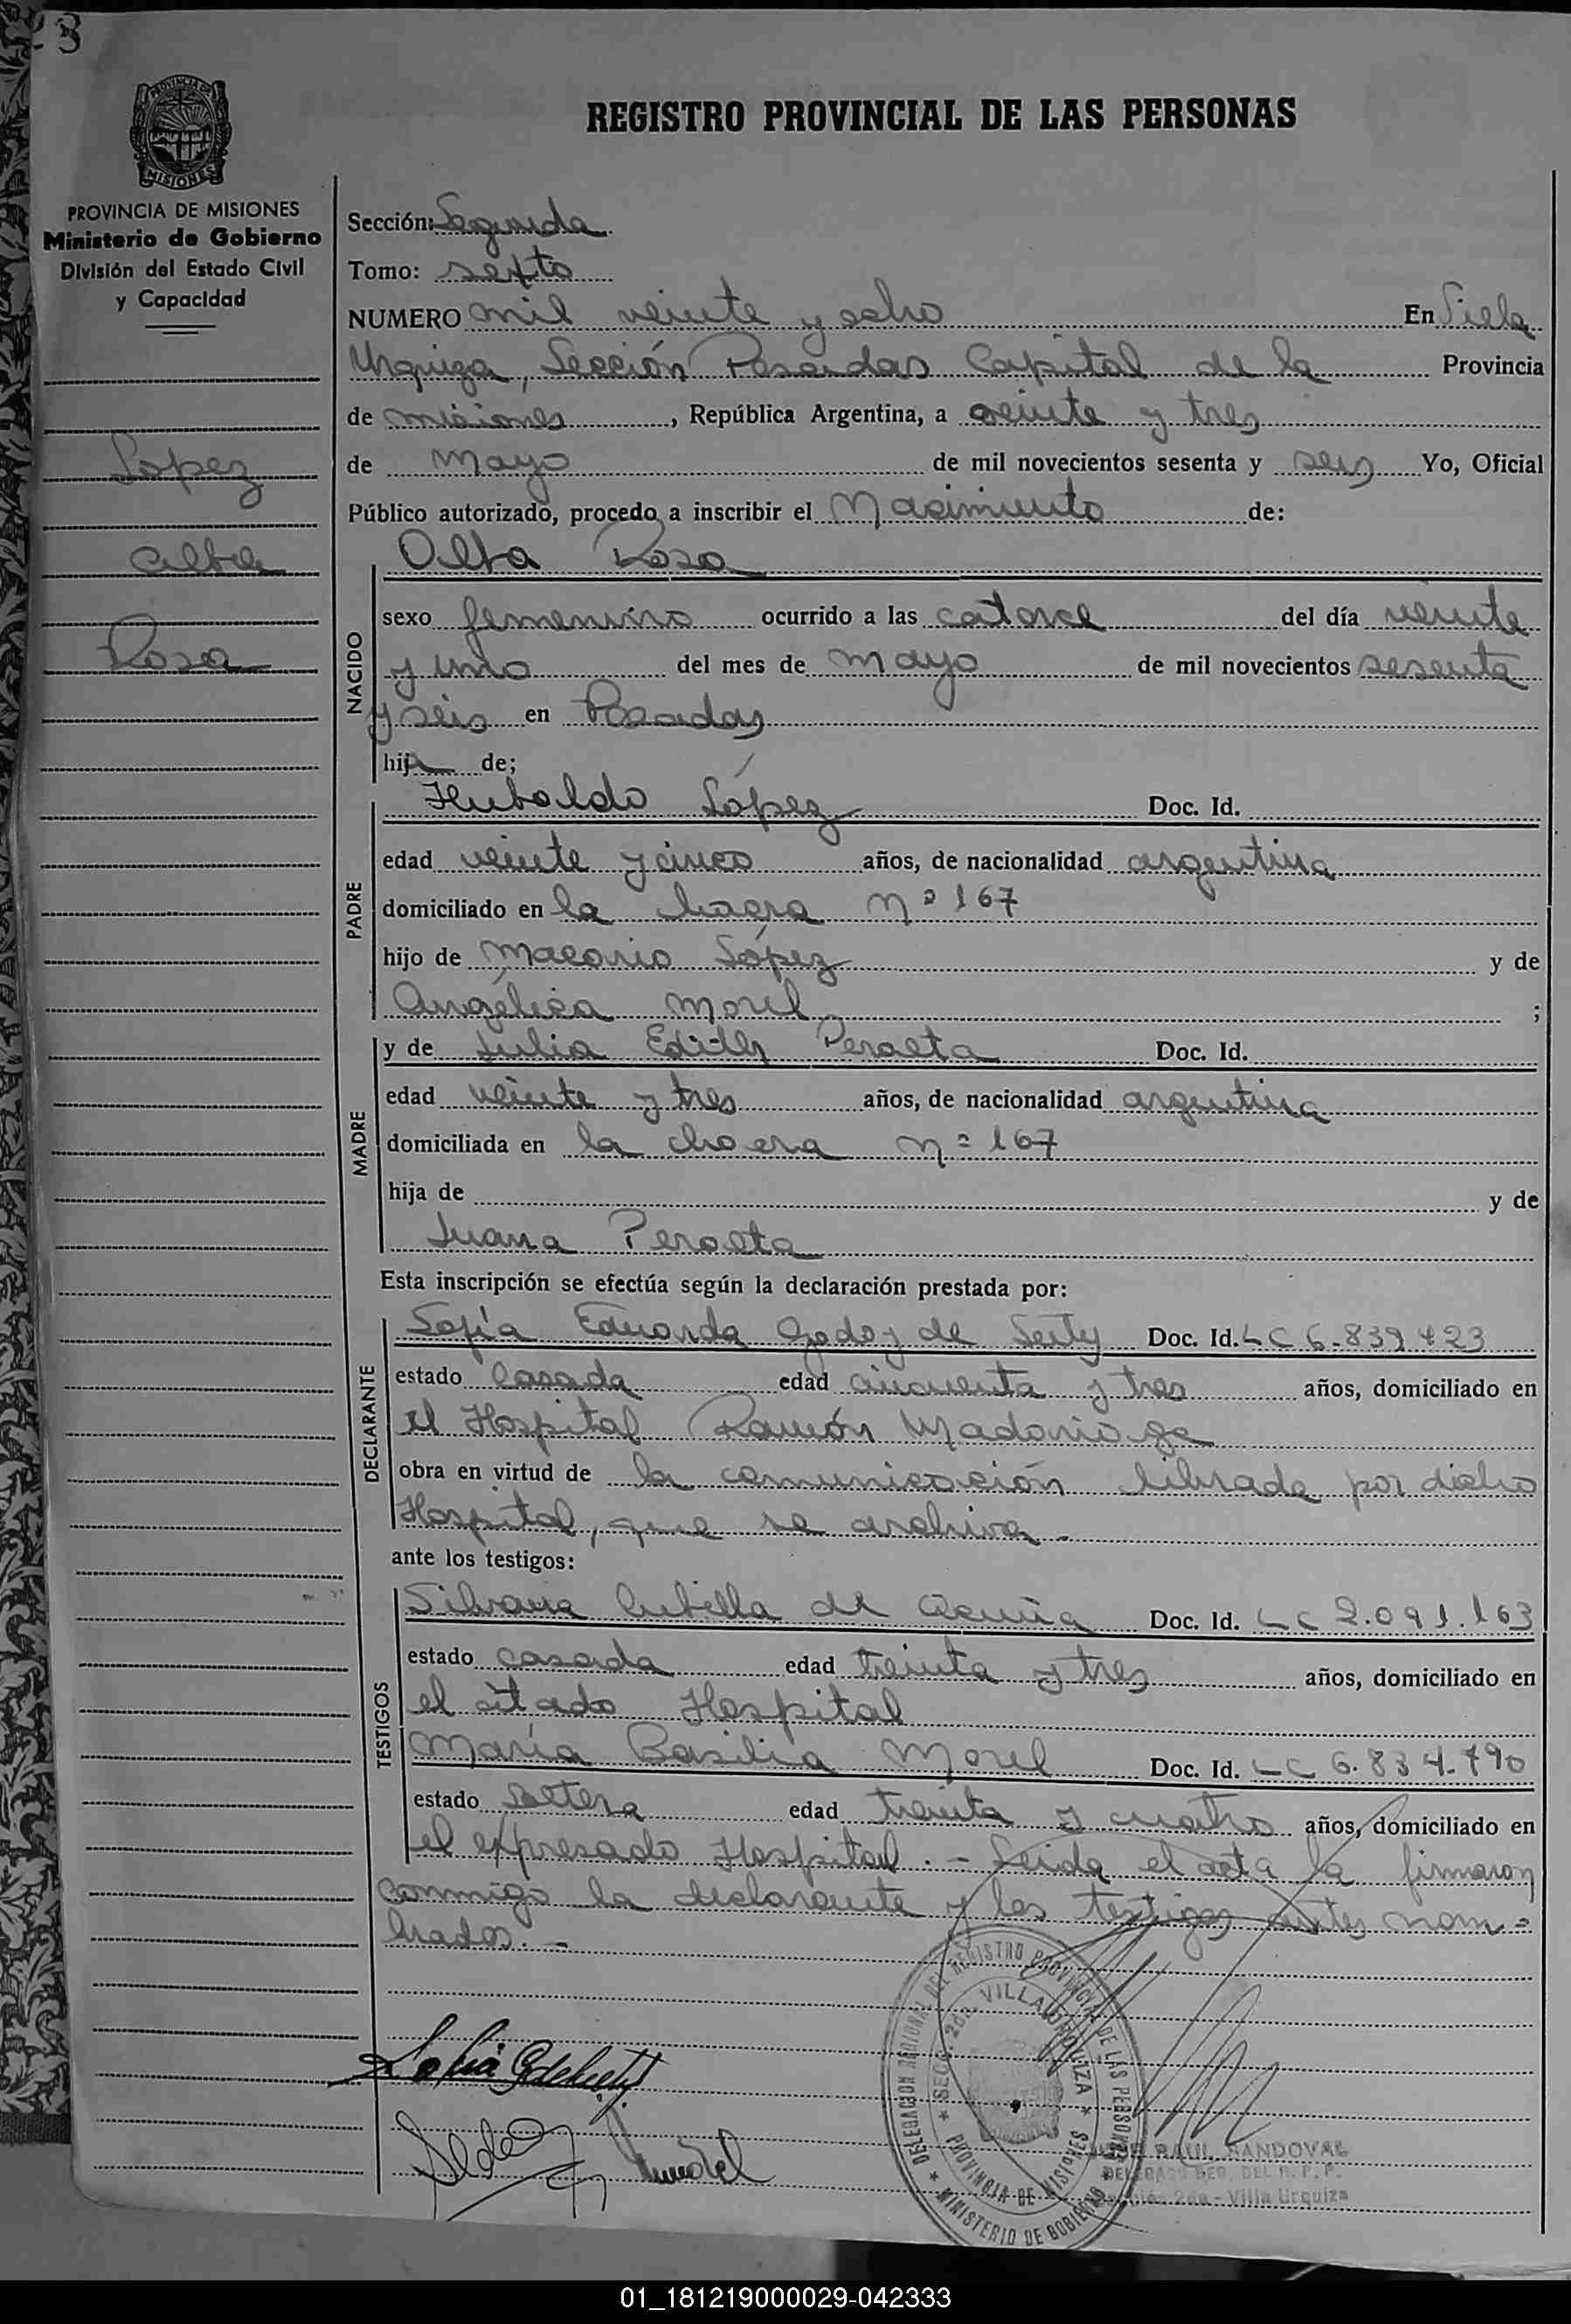 23
REGISTRO PROVINCIAL DE LAS PERSONAS
PROVINCIA DE MISIONES
MISIONES
PROVINCIA DE MISIONES
Ministerio de Gobierno
División del Estado Civil
y Capacidad
Lopez
Alba
Rosa
Sección: Segunda
Tomo: sexto
NUMERO mil veinte y ocho En Villa
Urquiza, Sección Posadas Capital de la Provincia
de misiones, República Argentina, a veinte y tres
de mayo de mil novecientos sesenta y seis Yo, Oficial
Público autorizado, procedo a inscribir el Nacimiento de:
NACIDO
Alba Rosa
sexo femenino ocurrido a las catorce del día veinte
y uno del mes de mayo de mil novecientos sesenta
y seis en Posadas
hija de;
PADRE
Hubaldo López Doc. Id.
edad veinte y cinco años, de nacionalidad argentina
domiciliado en la chacra nº 167
hijo de Macario López y de
Angélica Morel ;
MADRE
y de Julia Edith Peralta Doc. Id.
edad veinte y tres años, de nacionalidad argentina
domiciliada en la chacra nº 167
hija de y de
Juana Peralta
Esta inscripción se efectúa según la declaración prestada por:
DECLARANTE
Sofía Eduarda Godoy de Doc. Id. LC 6.839.423
estado casada edad cincuenta y tres años, domiciliado en
el Hospital Ramón Madariaga
obra en virtud de la comunicación librada por dicho
Hospital, que se archiva -
ante los testigos:
TESTIGOS
Silvana Cubilla de Acuña Doc. Id. LC 2.091.163
estado casada edad treinta y tres años, domiciliado en
el citado Hospital
María Basilia Morel Doc. Id. LC 6.834.790
estado soltera edad treinta y cuatro años, domiciliado en
el expresado Hospital. - Leida el acta la firmaron
conmigo la declarante y los testigos antes nom=
brados. -
DELEGACION REGIONAL DEL REGISTRO PROVINCIAL DE LAS PERSONAS
SECC. 2da. VILLA URQUIZA
PROVINCIA DE MISIONES
MINISTERIO DE GOBIERNO
RAUL SANDOVAL
DELEGADO REG. DEL R. P. P.
Sección 2da - Villa Urquiza
01_181219000029-042333